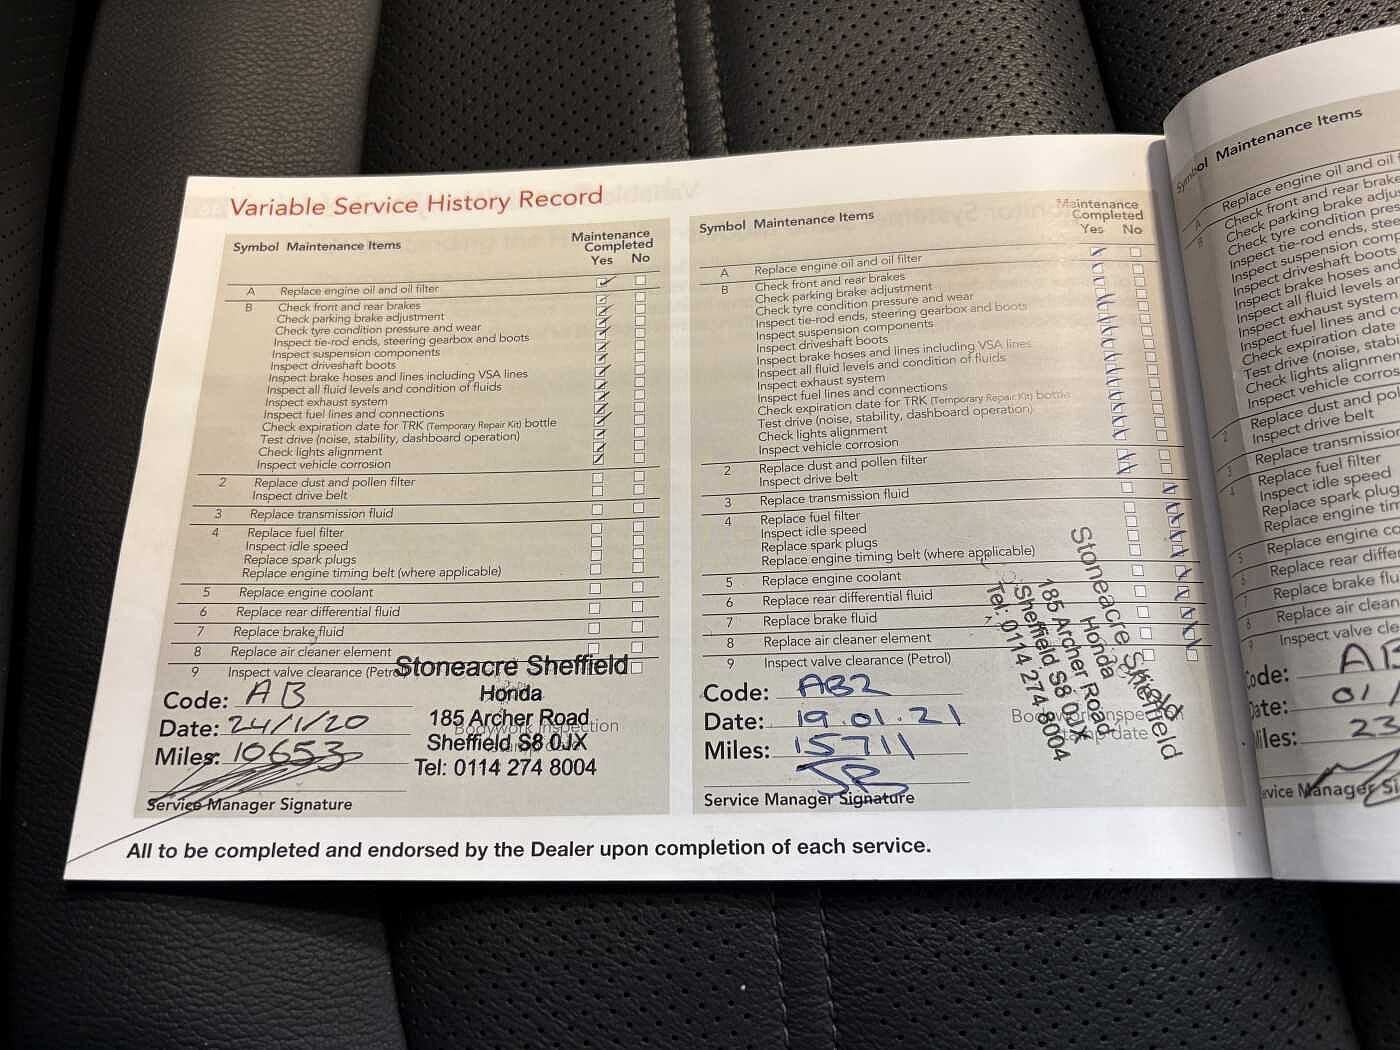 Variable Service History Record
Symbol Maintenance Items
Maintenance
Completed
Yes No
A Replace engine oil and oil filter
B Check front and rear brakes
Check parking brake adjustment
Check tyre condition pressure and wear
Inspect tie-rod ends, steering gearbox and boots
Inspect suspension components
Inspect driveshaft boots
Inspect brake hoses and lines including VSA lines
Inspect all fluid levels and condition of fluids
Inspect exhaust system
Inspect fuel lines and connections
Check expiration date for TRK (Temporary Repair Kit) bottle
Test drive (noise, stability, dashboard operation)
Check lights alignment
Inspect vehicle corrosion
2 Replace dust and pollen filter
Inspect drive belt
3 Replace transmission fluid
4 Replace fuel filter
Inspect idle speed
Replace spark plugs
Replace engine timing belt (where applicable)
5 Replace engine coolant
6 Replace rear differential fluid
7 Replace brake fluid
8 Replace air cleaner element
9 Inspect valve clearance (Petrol)
Stoneacre Sheffield
Honda
185 Archer Road
Sheffield S8 0JX
Tel: 0114 274 8004
Bodywork Inspection
Code: AB
Date: 24/1/20
Miles: 10653
Service Manager Signature
Symbol Maintenance Items
Maintenance
Completed
Yes No
A Replace engine oil and oil filter
B Check front and rear brakes
Check parking brake adjustment
Check tyre condition pressure and wear
Inspect tie-rod ends, steering gearbox and boots
Inspect suspension components
Inspect driveshaft boots
Inspect brake hoses and lines including VSA lines
Inspect all fluid levels and condition of fluids
Inspect exhaust system
Inspect fuel lines and connections
Check expiration date for TRK (Temporary Repair Kit) bottle
Test drive (noise, stability, dashboard operation)
Check lights alignment
Inspect vehicle corrosion
2 Replace dust and pollen filter
Inspect drive belt
3 Replace transmission fluid
4 Replace fuel filter
Inspect idle speed
Replace spark plugs
Replace engine timing belt (where applicable)
5 Replace engine coolant
6 Replace rear differential fluid
7 Replace brake fluid
8 Replace air cleaner element
9 Inspect valve clearance (Petrol)
Stoneacre Sheffield
Honda
185 Archer Road
Sheffield S8 0JX
Tel: 0114 274 8004
Bodywork Inspection
Code: AB2
Date: 19.01.21
Miles: 15711
Service Manager Signature
All to be completed and endorsed by the Dealer upon completion of each service.
Symbol Maintenance Items
A Replace engine oil and oil
B Check front and rear brake
Check parking brake
Check tyre condition
Inspect tie-rod ends,
Inspect suspension
Inspect driveshaft boots
Inspect brake hoses and
Inspect all fluid levels
Inspect exhaust system
Inspect fuel lines and
Check expiration date
Test drive (noise,
Check lights
Inspect vehicle
2 Replace dust and
Inspect drive belt
3 Replace transmission
4 Replace fuel filter
Inspect idle speed
Replace spark
Replace engine
5 Replace engine
6 Replace rear
7 Replace brake
8 Replace air
9 Inspect valve